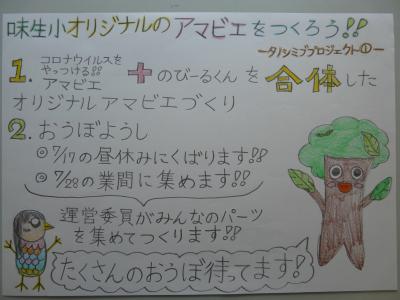 味生小オリジナルのアマビエをつくろう!!
―タノシミププロジェクト①―
1. コロナウイルスを
やっつける!!
アマビエ
＋のびーるくんを合体した
オリジナルアマビエづくり
2. おうぼようし
◎7/17の昼休みにくばります!!
◎7/28の業間に集めます!!
運営委員がみんなのパーツ
を集めてつくります!!
たくさんのおうぼ待ってます!